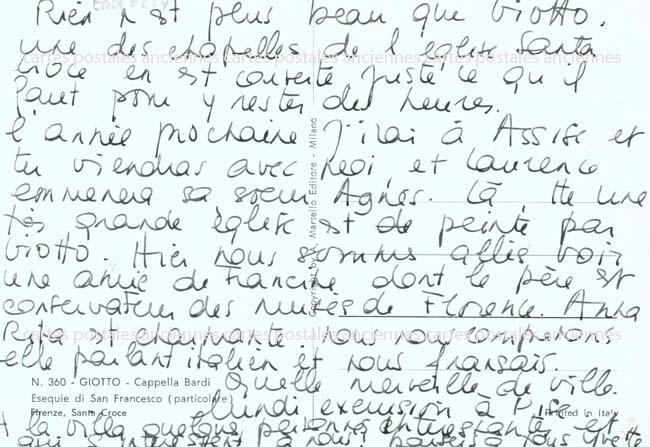 Rien n'est plus beau que Giotto.
une des chapelles de l'église Santa
cartes postales anciennes cartes postales anciennes cartes postales anciennes
Croce en est couverte juste ce qu'il
faut pour y rester des heures.
l'année prochaine j'irai à Assise et
tu viendras avec moi et Laurence
emmenera sa soeur Agnès. Là, tte une
très grande église est de peinte par
Giotto. Hier nous sommes allés voir
une amie de Francine dont le père est
conservateur des musées de Florence. Anna
cartes postales anciennes cartes postales anciennes cartes postales anciennes
est charmante. nous nous comprenons
elle parlant italien et nous français.
Quelle merveille de ville.
lundi excursion à Pise et
la ville quelques personnes intéressantes et
qui s'intéressent à nous.
Copyright by A. Martello Editore - Milano
N. 360 - GIOTTO - Cappella Bardi
Esequie di San Francesco (particolare)
Firenze, Santa Croce
Printed in Italy